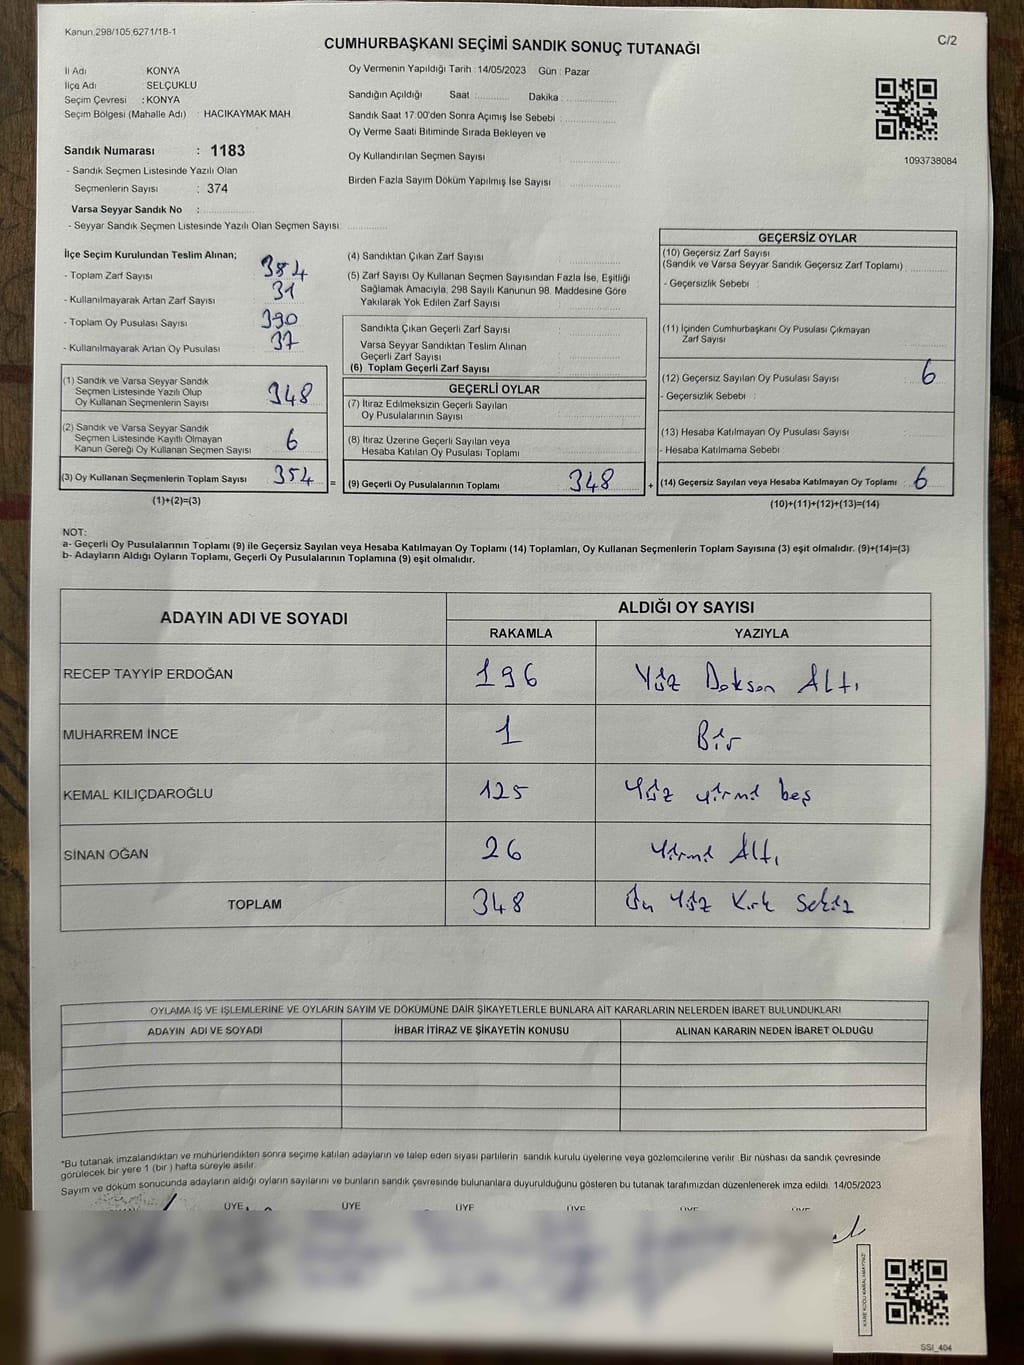 Kanun 298/105 6271/18-1
CUMHURBAŞKANI SEÇİMİ SANDIK SONUÇ TUTANAĞI
C/2
İl Adı KONYA
İlçe Adı SELÇUKLU
Seçim Çevresi : KONYA
Seçim Bölgesi (Mahalle Adı) : HACIKAYMAK MAH
Sandık Numarası : 1183
- Sandık Seçmen Listesinde Yazılı Olan
Seçmenlerin Sayısı : 374
Varsa Seyyar Sandık No :
- Seyyar Sandık Seçmen Listesinde Yazılı Olan Seçmen Sayısı:
Oy Vermenin Yapıldığı Tarih : 14/05/2023 Gün : Pazar
Sandığın Açıldığı Saat : Dakika :
Sandık Saat 17:00'den Sonra Açımış İse Sebebi :
Oy Verme Saati Bitiminde Sırada Bekleyen ve
Oy Kullandırılan Seçmen Sayısı
Birden Fazla Sayım Döküm Yapılmış İse Sayısı :
1093738084
İlçe Seçim Kurulundan Teslim Alınan;
- Toplam Zarf Sayısı 384
- Kullanılmayarak Artan Zarf Sayısı 31
- Toplam Oy Pusulası Sayısı 390
- Kullanılmayarak Artan Oy Pusulası 37
(1) Sandık ve Varsa Seyyar Sandık
Seçmen Listesinde Yazılı Olup
Oy Kullanan Seçmenlerin Sayısı 348
(2) Sandık ve Varsa Seyyar Sandık
Seçmen Listesinde Kayıtlı Olmayan
Kanun Gereği Oy Kullanan Seçmen Sayısı 6
(3) Oy Kullanan Seçmenlerin Toplam Sayısı 354 =
(1)+(2)=(3)
(4) Sandıktan Çıkan Zarf Sayısı
(5) Zarf Sayısı Oy Kullanan Seçmen Sayısından Fazla İse, Eşitliği
Sağlamak Amacıyla, 298 Sayılı Kanunun 98. Maddesine Göre
Yakılarak Yok Edilen Zarf Sayısı
Sandıkta Çıkan Geçerli Zarf Sayısı
Varsa Seyyar Sandıktan Teslim Alınan
Geçerli Zarf Sayısı
(6) Toplam Geçerli Zarf Sayısı
GEÇERLİ OYLAR
(7) İtiraz Edilmeksizin Geçerli Sayılan
Oy Pusulalarının Sayısı
(8) İtiraz Üzerine Geçerli Sayılan veya
Hesaba Katılan Oy Pusulası Toplamı
(9) Geçerli Oy Pusulalarının Toplamı 348 +
GEÇERSİZ OYLAR
(10) Geçersiz Zarf Sayısı
(Sandık ve Varsa Seyyar Sandık Geçersiz Zarf Toplamı)
- Geçersizlik Sebebi :
(11) İçinden Cumhurbaşkanı Oy Pusulası Çıkmayan
Zarf Sayısı
(12) Geçersiz Sayılan Oy Pusulası Sayısı 6
- Geçersizlik Sebebi :
(13) Hesaba Katılmayan Oy Pusulası Sayısı
- Hesaba Katılmama Sebebi :
(14) Geçersiz Sayılan veya Hesaba Katılmayan Oy Toplamı : 6
(10)+(11)+(12)+(13)=(14)
NOT:
a- Geçerli Oy Pusulalarının Toplamı (9) ile Geçersiz Sayılan veya Hesaba Katılmayan Oy Toplamı (14) Toplamları, Oy Kullanan Seçmenlerin Toplam Sayısına (3) eşit olmalıdır. (9)+(14)=(3)
b- Adayların Aldığı Oyların Toplamı, Geçerli Oy Pusulalarının Toplamına (9) eşit olmalıdır.
ADAYIN ADI VE SOYADI ALDIĞI OY SAYISI
RAKAMLA YAZIYLA
RECEP TAYYİP ERDOĞAN 196 Yüz Doksan Altı
MUHARREM İNCE 1 Bir
KEMAL KILIÇDAROĞLU 125 Yüz yirmi beş
SİNAN OĞAN 26 Yirmi Altı
TOPLAM 348 Üç Yüz Kırk Sekiz
OYLAMA İŞ VE İŞLEMLERİNE VE OYLARIN SAYIM VE DÖKÜMÜNE DAİR ŞİKAYETLERLE BUNLARA AİT KARARLARIN NELERDEN İBARET BULUNDUKLARI
ADAYIN ADI VE SOYADI İHBAR İTİRAZ VE ŞİKAYETİN KONUSU ALINAN KARARIN NEDEN İBARET OLDUĞU
*Bu tutanak imzalandıktan ve mühürlendikten sonra seçime katılan adayların ve talep eden siyasi partilerin sandık kurulu üyelerine veya gözlemcilerine verilir. Bir nüshası da sandık çevresinde
görülecek bir yere 1 (bir ) hafta süreyle asılır.
Sayım ve döküm sonucunda adayların aldığı oyların sayılarını ve bunların sandık çevresinde bulunanlara duyurulduğunu gösteren bu tutanak tarafımızdan düzenlenerek imza edildi. 14/05/2023
ÜYE ÜYE ÜYE ÜYE ÜYE ÜYE
SSI_404